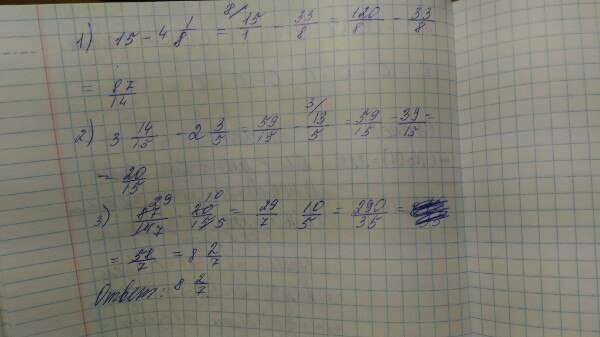 1) 15 - 4 1/8 = 8/ 15/1 - 33/8 = 120/8 - 33/8
= 87/14
2) 3 14/15 - 2 3/5 = 59/15 - 3/ 13/5 = 59/15 - 39/15 =
= 20/15
3) 87 29/14 7 20 10/15 5 = 29/7 10/5 = 290/35 =
= 58/7 = 8 2/7
Ответ: 8 2/7